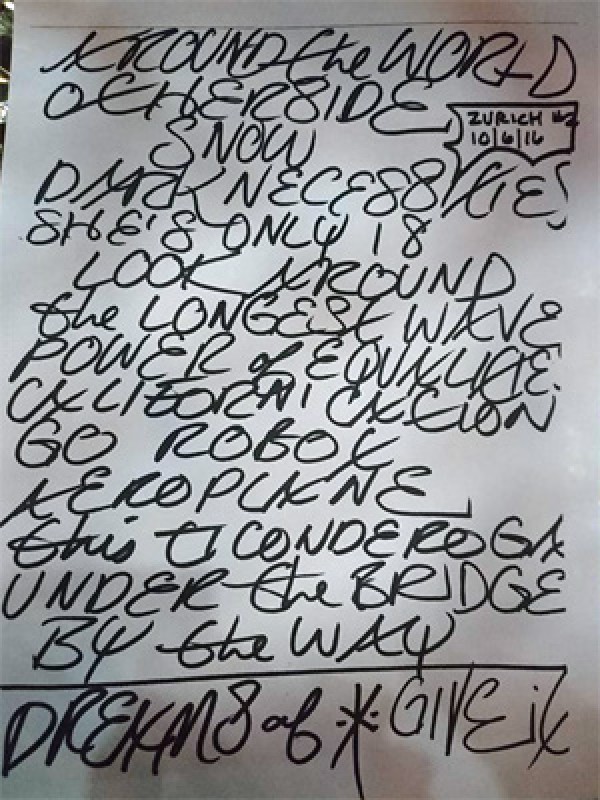 AROUND the WORLD
OtHERSIDE
ZURICH #2
10/6/16
SNOW
DARK NECESSitiES
SHE'S ONLY 18
LOOK AROUND
the LONGESt WAVE
POWER of EQUALitiE
CALIFORNiCAtiON
GO ROBOt
AEROPLANE
this tiCONDEROGA
UNDER the BRIDGE
BY the WAY
DREAMS of * GIVE it